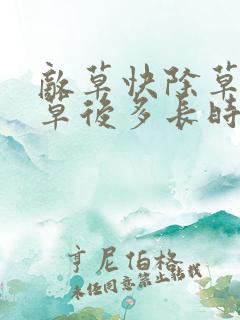 敵草快除草
草後多長時
亨尼伯格
未经同意禁止转载